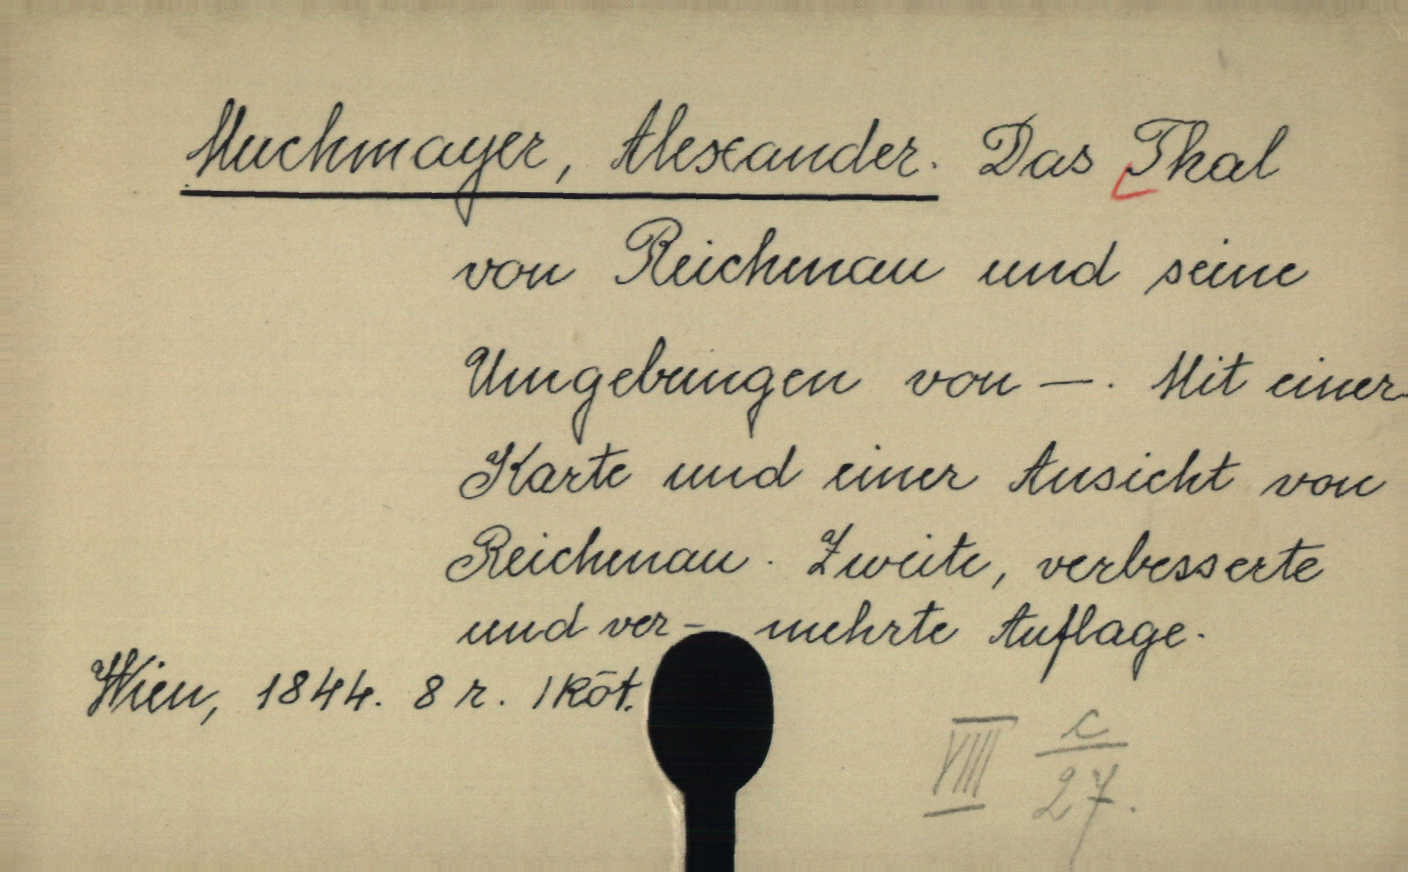 Muchmayer, Alexander. Das Thal
von Reichenau und seine
Umgebungen von —. Mit einer
Karte und einer Ansicht von
Reichenau. Zweite, verbesserte
und ver- mehrte Auflage.
Wien, 1844. 8 r. 1 Köt.
VIII c/27.